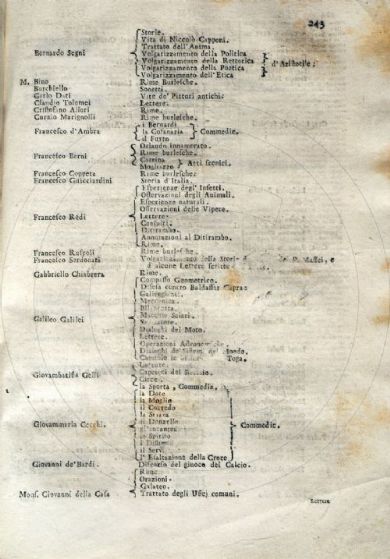 243
Storie.
Vita di Niccolò Capponi.
Trattato dell'Anima.
Bernardo Segni
Volgarizzamento della Politica
Volgarizzamento della Rettorica
d'Aristotile.
Volgarizzamento della Poetica
Volgarizzamento dell'Etica
M. Bino Rime Burlesche.
Burchiello Sonetti.
Carlo Dati Vite de' Pittori antichi.
Claudio Tolomei Lettere.
Cristofano Allori Rime.
Curzio Marignolli Rime burlesche.
i Bernardi
Francesco d'Ambra la Cofanaria Commedie.
il Furto
Orlando innamorato.
Francesco Berni Rime burlesche.
Catrina
Mogliazzo Atti scenici.
Francesco Coppetta Rime burlesche.
Francesco Guicciardini Storia d'Italia.
Esperienze degl' Insetti.
Osservazioni degli Animali.
Esperienze naturali.
Osservazioni delle Vipere.
Francesco Redi Lettere.
Consulti.
Ditirambo.
Annotazioni al Ditirambo.
Rime.
Francesco Ruspoli Rime burlesche.
Francesco Serdonati Volgarizzamento della Storia del P. Maffei, e
d'alcune Lettere scritte
Gabbriello Chiabrera Rime.
Compasso Geometrico.
Difesa contro Baldassar Capra
Galleggianti.
Macchie Solari.
Galileo Galilei
Dialoghi del Moto.
Lettere.
Operazioni Astronomiche
Dialoghi de' Sistemi del Mondo.
Capitolo in Toga.
Giovambatista Gelli Capricci del Bottaio.
Circe.
la Sporta, Commedia.
la Dote
la Moglie
il Corredo
la Stiava
Giovammaria Cecchi. il Donzello Commedie.
gl'Incantesimi
lo Spirito
i Dissimili
il Servi
l'Esaltazione della Croce
Giovanni de' Bardi. Discorso del giuoco del Calcio.
Rime
Orazioni.
Galateo.
Mons. Giovanni della Casa Trattato degli Ufici comuni.
Lettere